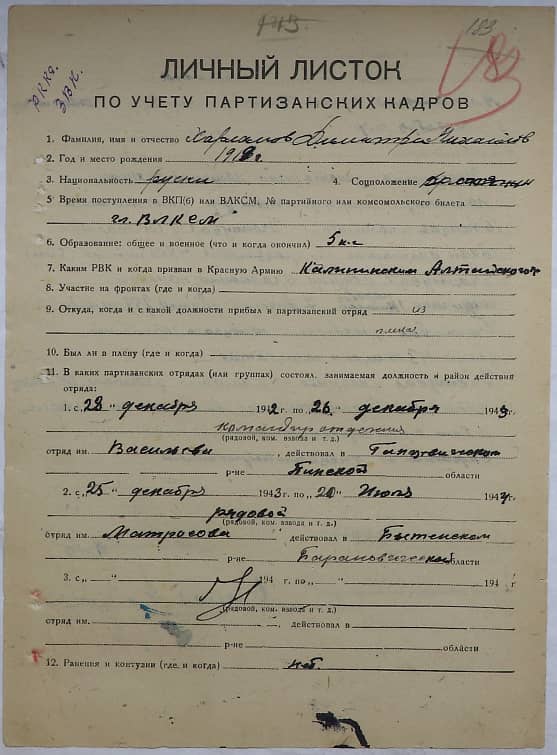 183
183
РККА.
ЗВК.
ЛИЧНЫЙ ЛИСТОК
ПО УЧЕТУ ПАРТИЗАНСКИХ КАДРОВ
1. Фамилия, имя и отчество Харламов
2. Год и место рождения
3. Национальность руски 4. Соцположение
5. Время поступления в ВКП(б) или ВЛКСМ, № партийного или комсомольского билета
чл. ВЛКСМ
6. Образование: общее и военное (что и когда окончил) 5 кл
7. Каким РВК и когда призван в Красную Армию Калининским Алтайского
8. Участие на фронтах (где и когда)
9. Откуда, когда и с какой должности прибыл в партизанский отряд из
плена
10. Был ли в плену (где и когда)
11. В каких партизанских отрядах (или группах) состоял, занимаемая должность и район действия
отряда:
1. с „28" декабря 1942 г. по „26" декабря 1943 г.
командир отделения
(рядовой, ком. взвода и т. д.)
отряд им. Васильева, действовал в
р-не Пинской области
2. с „25" декабря 1943 г. по „20" Июля 1944 г.
рядовой
(рядовой, ком. взвода и т. д.)
отряд им. Матросова, действовал в Бытенском
р-не Барановической области
3. с „ " 194 г. по „ " 194 г
(рядовой, ком. взвода и т. д.)
отряд им. , действовал в
р-не области
12. Ранения и контузии (где и когда) нет